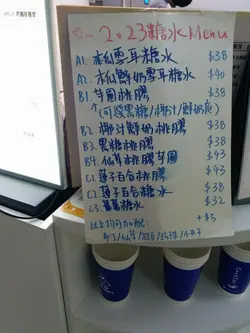 ~ 2.23糖水 Menu
A1. 木瓜雪耳糖水 $38
A2. 木瓜鮮奶雪耳糖水 $40
B1. 芋圓桃膠 $38
(可發黑糖/椰汁/鮮奶底)
B2. 椰汁鮮奶桃膠 $38
B3. 黑糖桃膠 $38
B4. 仙草桃膠芋圓 $43
C1. 蓮子百合桃膠 $43
C2. 蓮子百合糖水 $38
C3. 糖水 $32
以上均可加配: +$5
布丁/仙草/